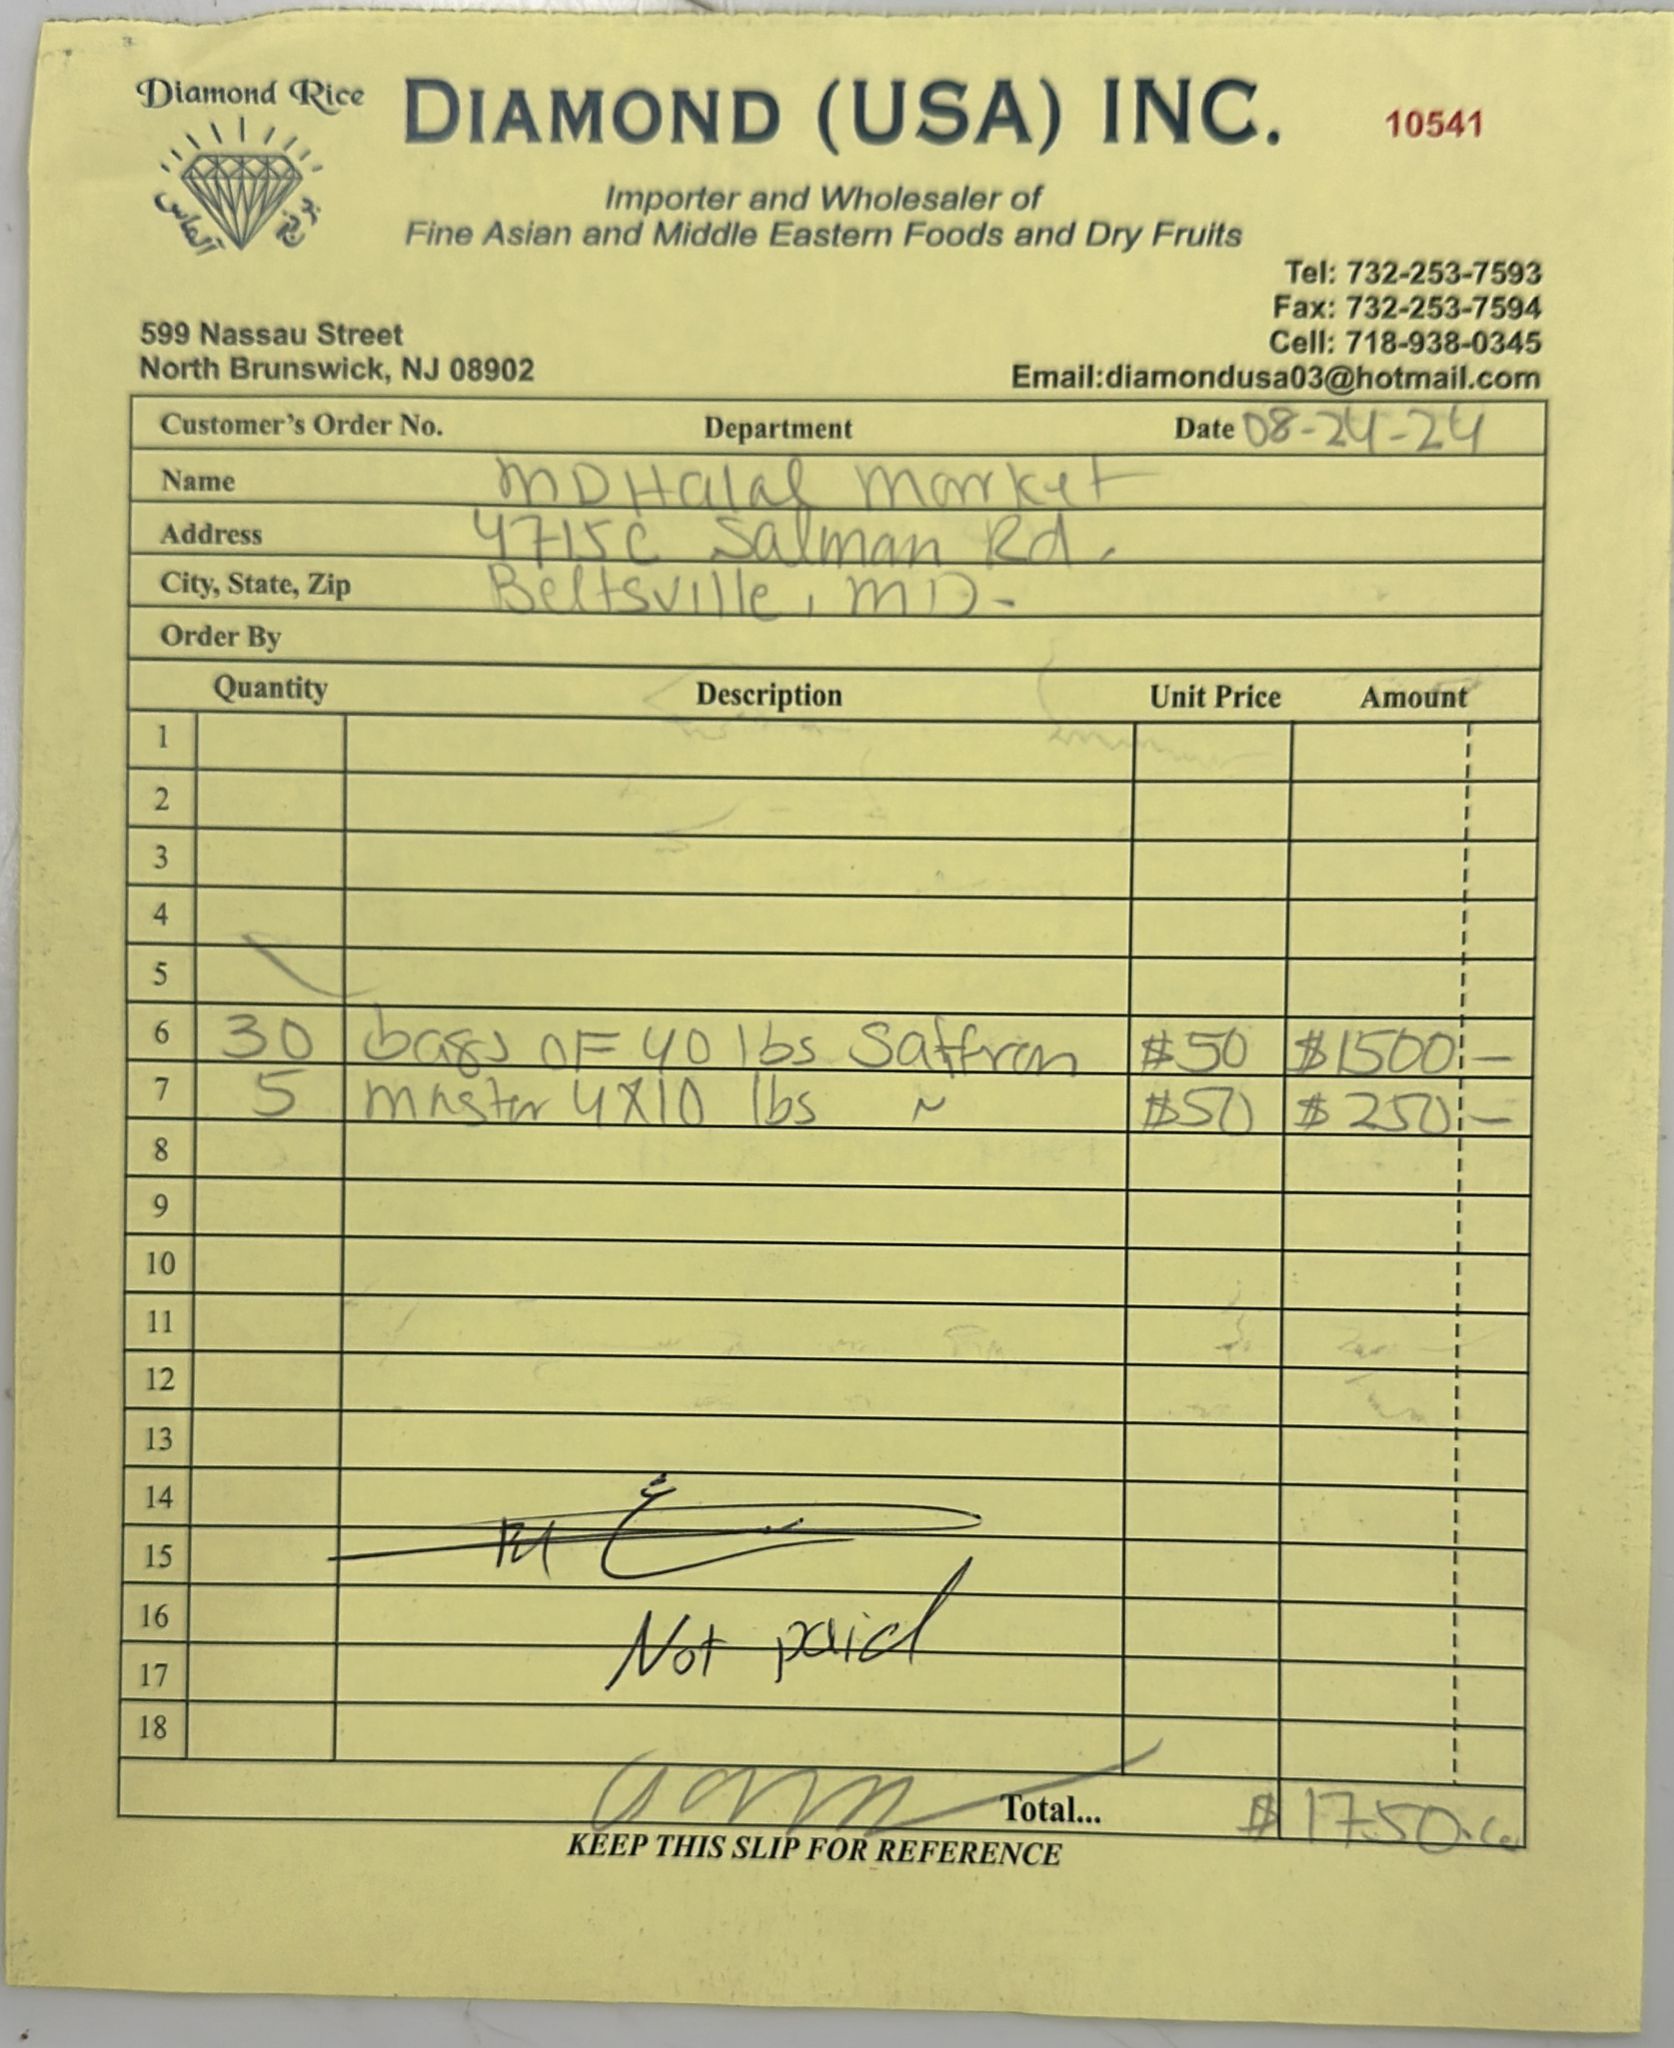 Diamond Rice
DIAMOND (USA) INC.
10541
Importer and Wholesaler of
Fine Asian and Middle Eastern Foods and Dry Fruits
Tel: 732-253-7593
Fax: 732-253-7594
Cell: 718-938-0345
Email:diamondusa03@hotmail.com
599 Nassau Street
North Brunswick, NJ 08902
Customer's Order No. Department Date 08-24-24
Name MD Halal Market
Address 4715C Salman Rd.
City, State, Zip Beltsville, MD-
Order By
Quantity Description Unit Price Amount
1
2
3
4
5
6 30 bags OF 40 lbs Saffron $50 $1500 -
7 5 master 4X10 lbs ~ $50 $250 -
8
9
10
11
12
13
14
15
16
Not paid
17
18
Total... $1750.
KEEP THIS SLIP FOR REFERENCE